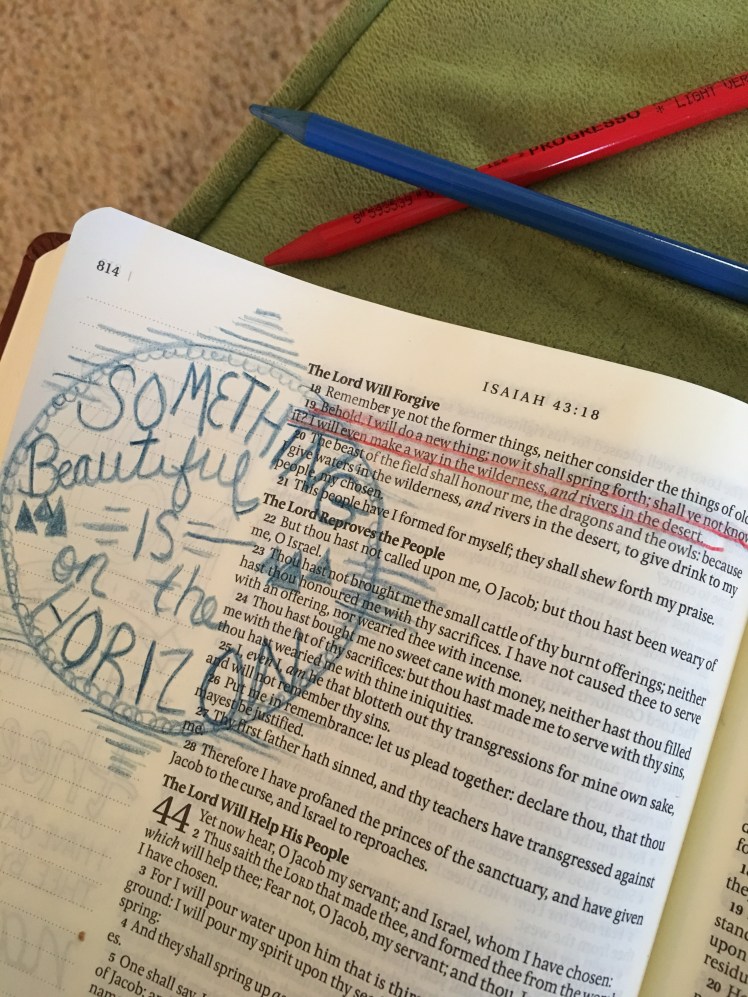 PROGRESSO * LIGHT VER
814
ISAIAH 43:18
SOMETHING
Beautiful
IS
on the
HORIZON
The Lord Will Forgive
18 Remember ye not the former things, neither consider the things of old
19 Behold, I will do a new thing; now it shall spring forth; shall ye not know
it? I will even make a way in the wilderness, and rivers in the desert.
20 The beast of the field shall honour me, the dragons and the owls: because
I give waters in the wilderness, and rivers in the desert, to give drink to my
people, my chosen.
21 This people have I formed for myself; they shall shew forth my praise.
The Lord Reproves the People
22 But thou hast not called upon me, O Jacob; but thou hast been weary of
me, O Israel.
23 Thou hast not brought me the small cattle of thy burnt offerings; neither
hast thou honoured me with thy sacrifices. I have not caused thee to serve
with an offering, nor wearied thee with incense.
24 Thou hast bought me no sweet cane with money, neither hast thou filled
me with the fat of thy sacrifices: but thou hast made me to serve with thy sins,
thou hast wearied me with thine iniquities.
25 I, even I, am he that blotteth out thy transgressions for mine own sake,
and will not remember thy sins.
26 Put me in remembrance: let us plead together: declare thou, that thou
mayest be justified.
27 Thy first father hath sinned, and thy teachers have transgressed against
me.
28 Therefore I have profaned the princes of the sanctuary, and have given
Jacob to the curse, and Israel to reproaches.
The Lord Will Help His People
44 Yet now hear, O Jacob my servant; and Israel, whom I have chosen:
2 Thus saith the LORD that made thee, and formed thee from the womb
which will help thee; Fear not, O Jacob, my servant; and thou, J
I have chosen.
3 For I will pour water upon him that is thir
ground: I will pour my spirit upon thy see
spring:
4 And they shall spring up a
es.
5 One shall say, I
of Jacob; a
nam
18
the
19
stand
upon
resid
20 H